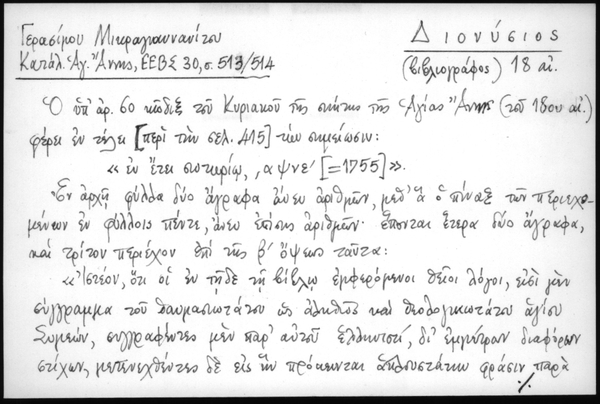 Γερασίμου Μικραγιαννανίτου
Κατάλ. Ἁγ. Ἄννης, ΕΕΒΣ 30, σ. 513/514
Διονύσιος
(βιβλιογράφος) 18 αἰ.
Ὁ ὑπ' ἀρ. 60 κῶδιξ τοῦ Κυριακοῦ τῆς σκήτης τῆς Ἁγίας Ἄννης (τοῦ 18ου αἰ.)
φέρει ἐν τέλει [περὶ τὴν σελ. 415] τὴν σημείωσιν:
« ἐν ἔτει σωτηρίῳ, ͵αψνε' [=1755] ».
Ἐν ἀρχῇ φύλλα δύο ἄγραφα ἄνευ ἀριθμῶν, μεθ' ἃ ὁ πίναξ τῶν περιεχο-
μένων ἐν φύλλοις πέντε, ἄνευ ἐπίσης ἀριθμῶν· ἕπονται ἕτερα δύο ἄγραφα,
καὶ τρίτον περιέχον ἐπὶ τῆς β' ὄψεως ταῦτα:
« Ἰστέον, ὅτι οἱ ἐν τῇδε τῇ βίβλῳ ἐμφερόμενοι θεῖοι λόγοι, εἰσὶ μὲν
σύγγραμμα τοῦ θαυμασιωτάτου ὡς ἀληθῶς καὶ θεολογικωτάτου ἁγίου
Συμεών, συγγραφέντες μὲν παρ' αὐτοῦ ἑλληνιστί, δι' ἐμμέτρων διαφόρων
στίχων, μετενεχθέντες δὲ εἰς ἣν πρόκεινται ἁπλουστάτην φράσιν παρὰ
./.